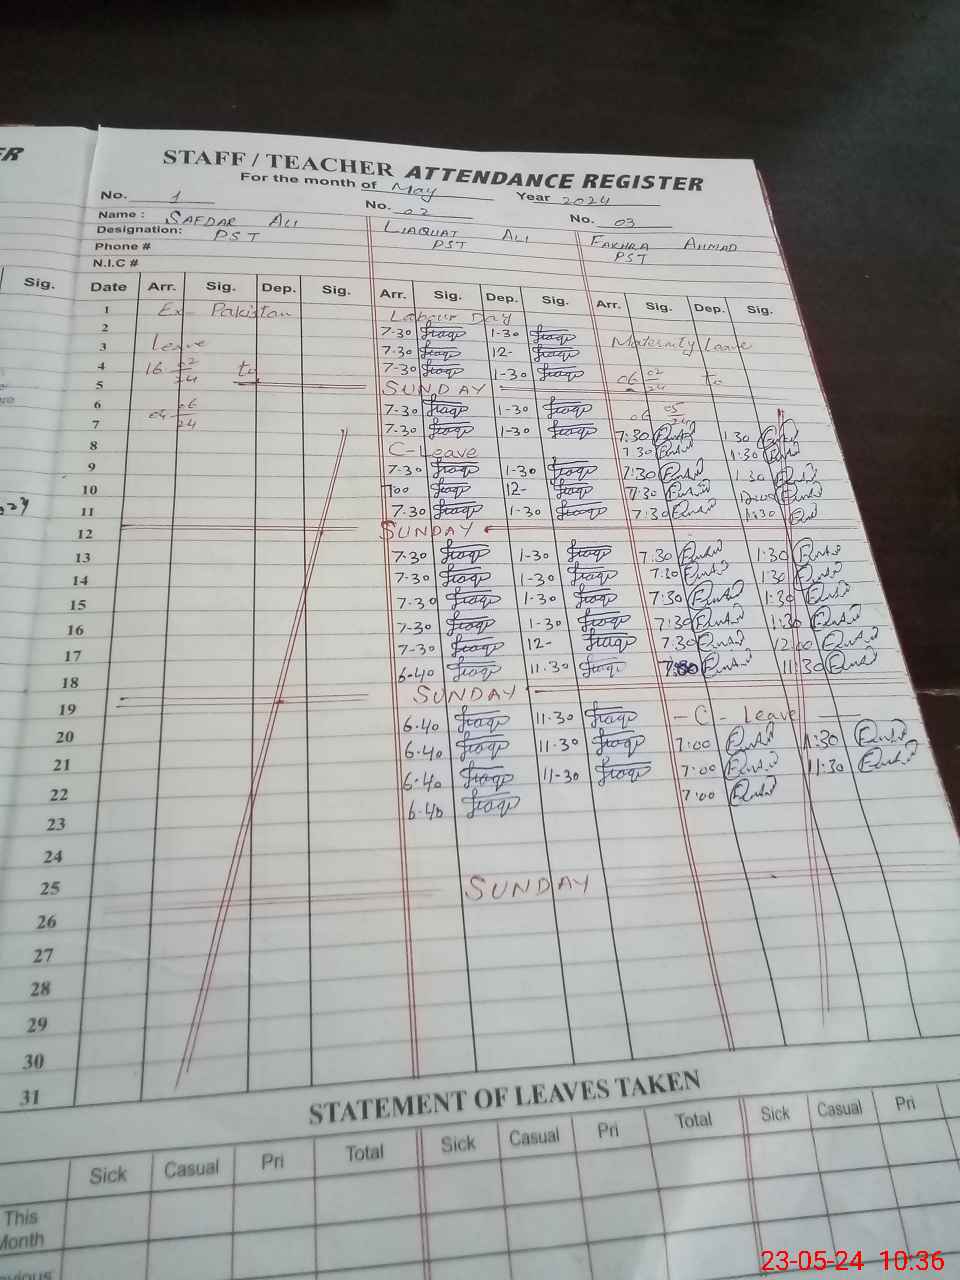 ER
STAFF / TEACHER ATTENDANCE REGISTER
For the month of May Year 2024
No. 1 No. 02 No. 03
Name : SAFDAR ALI LIAQUAT ALI FAKHRA AHMAD
Designation: PST PST PST
Phone #
N.I.C #
Sig. Date Arr. Sig. Dep. Sig. Arr. Sig. Dep. Sig. Arr. Sig. Dep. Sig.
1 Ex- Pakistan Labour Day
2 7-30 1-30
3 Leave 7-30 12- Maternity Leave
4 16 02/24 to 7-30 1-30 06 02/24 to
5 SUNDAY
6 04 06/24 7-30 1-30 06 05/24
7 7-30 1-30 7:30 1:30
8 C-Leave 7:30 1:30
9 7-30 1-30 7:30 1:30
10 7:00 12- 7:30
11 7-30 1-30 7:30 1:30
12 SUNDAY
13 7-30 1-30 7:30 1:30
14 7-30 1-30 7:30 1:30
15 7-30 1-30 7:30 1:30
16 7-30 1-30 7:30 1:30
17 7-30 12- 7:30 12:00
18 6-40 11-30 11:30
19 SUNDAY
20 6-40 11-30 - C - Leave
21 6-40 11-30 7:00 11:30
22 6-40 11-30 7:00 11:30
23 6-40 7:00
24
25
26 SUNDAY
27
28
29
30
31
STATEMENT OF LEAVES TAKEN
Sick Casual Pri Total Sick Casual Pri Total Sick Casual Pri
This
Month
23-05-24 10:36